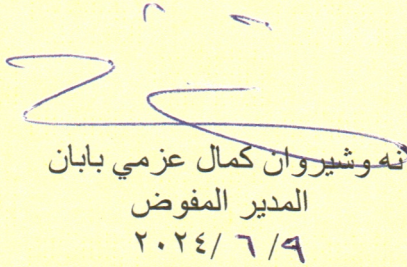 نه وشيروان كمال عزمي بابان
المدير المفوض
٢٠٢٤/ ٦ /٩